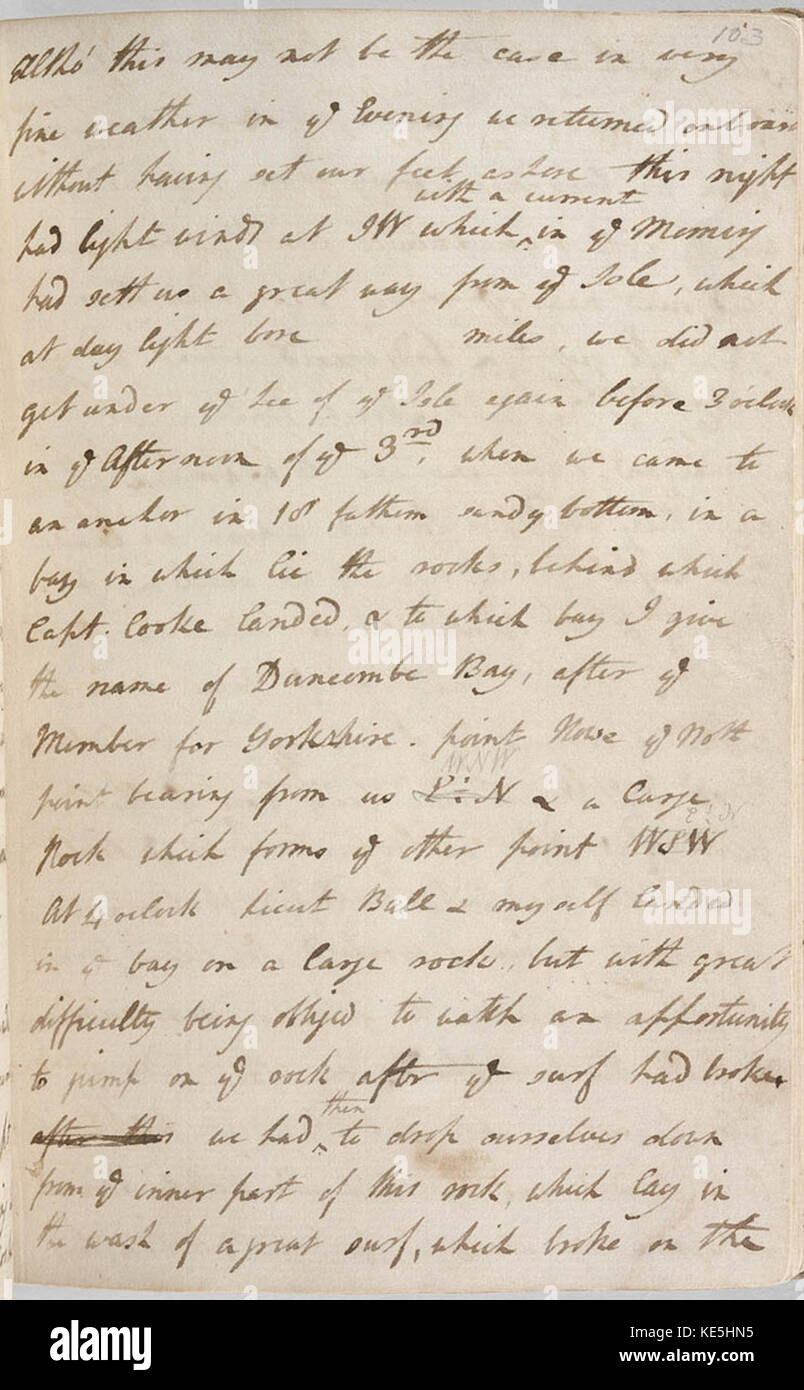 103
Altho' this may not be the case in very
fine weather in ye Evening we returned onboard
without having set our feet ashore this night
with a current
had light winds at SW which ^ in ye Morning
had sett us a great way from ye Isle, which
at day light bore miles, we did not
get under ye Lee of ye Isle again before 3 oclock
in ye Afternoon of ye 3rd, when we came to
an anchor in 18 fathom sandy bottom, in a
bay in which lie the rocks, behind which
Capt. Cooke landed, & to which bay I give
the name of Duncombe Bay, after ye
Member for Yorkshire. point Howe ye North
WNW
point bearing from us & a large
E.N
Rock which forms ye other point WSW
At 4 oclock Lieut Ball & myself landed
in ye bay on a large rock, but with great
difficulty being obliged to watch an appportunity
to jump on ye rock after ye surf had broke,
then
after this we had ^ to drop ourselves down
from ye inner part of this rock, which lay in
the wash of a great surf, which broke on the
alamy
alamy stock photo
alamy
Image ID: KE5HN5
www.alamy.com